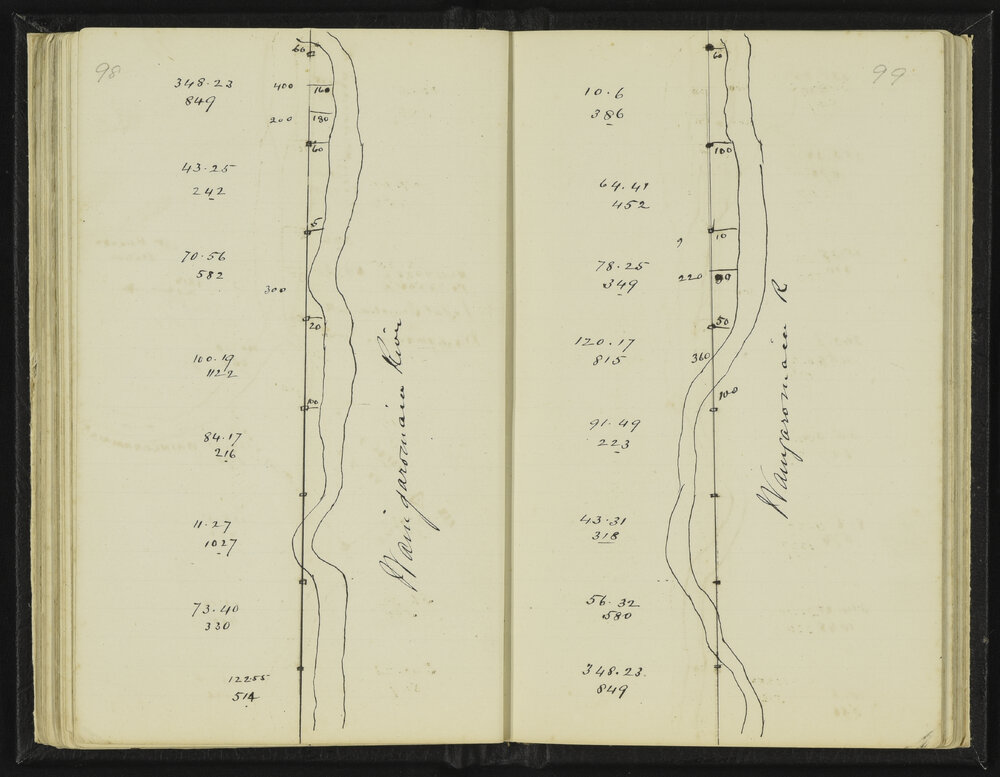 98
60
348.23
849
400
160
200
180
60
43.25
242
5
70.56
582
300
20
100.19
1122
100
84.17
216
Waingaromaia River
11.27
1027
73.40
330
122.55
514
99
60
10.6
386
100
64.41
452
10
78.25
349
220
50
120.17
815
360
100
91.49
223
Waingaromaia R
43.31
318
56.32
580
348.23
849